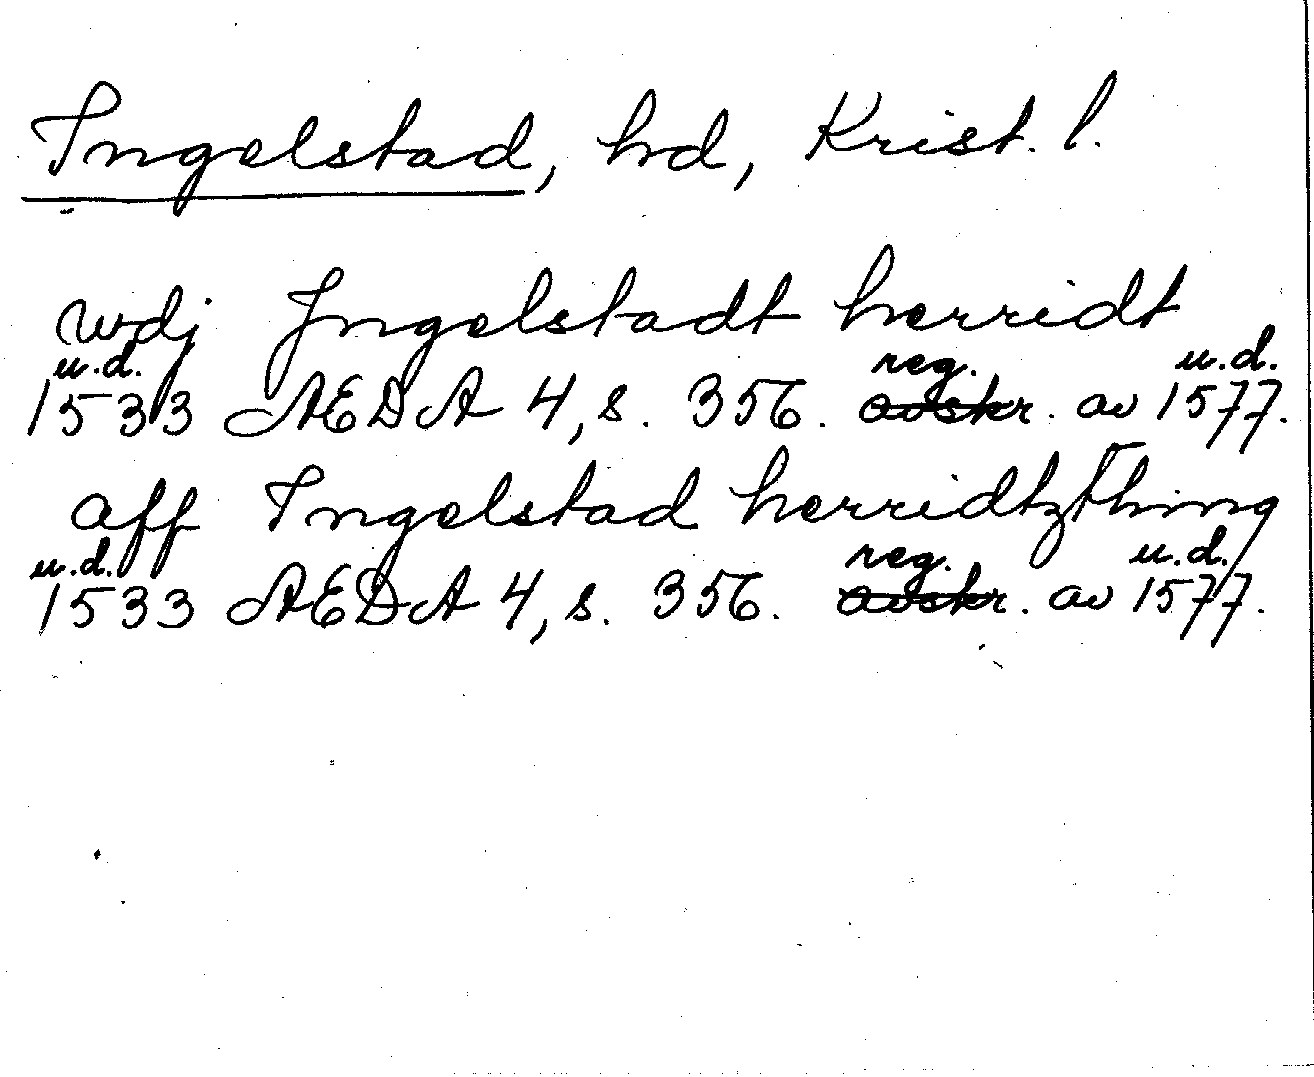 Ingelstad, hd, Krist. l.
wdj Jngelstadt herridt
u.d. reg. u.d.
1533 AEDA 4, s. 356. avskr. av 1577.
aff Ingelstad herridtzthing
u.d. reg. u.d.
1533 AEDA 4, s. 356. avskr. av 1577.